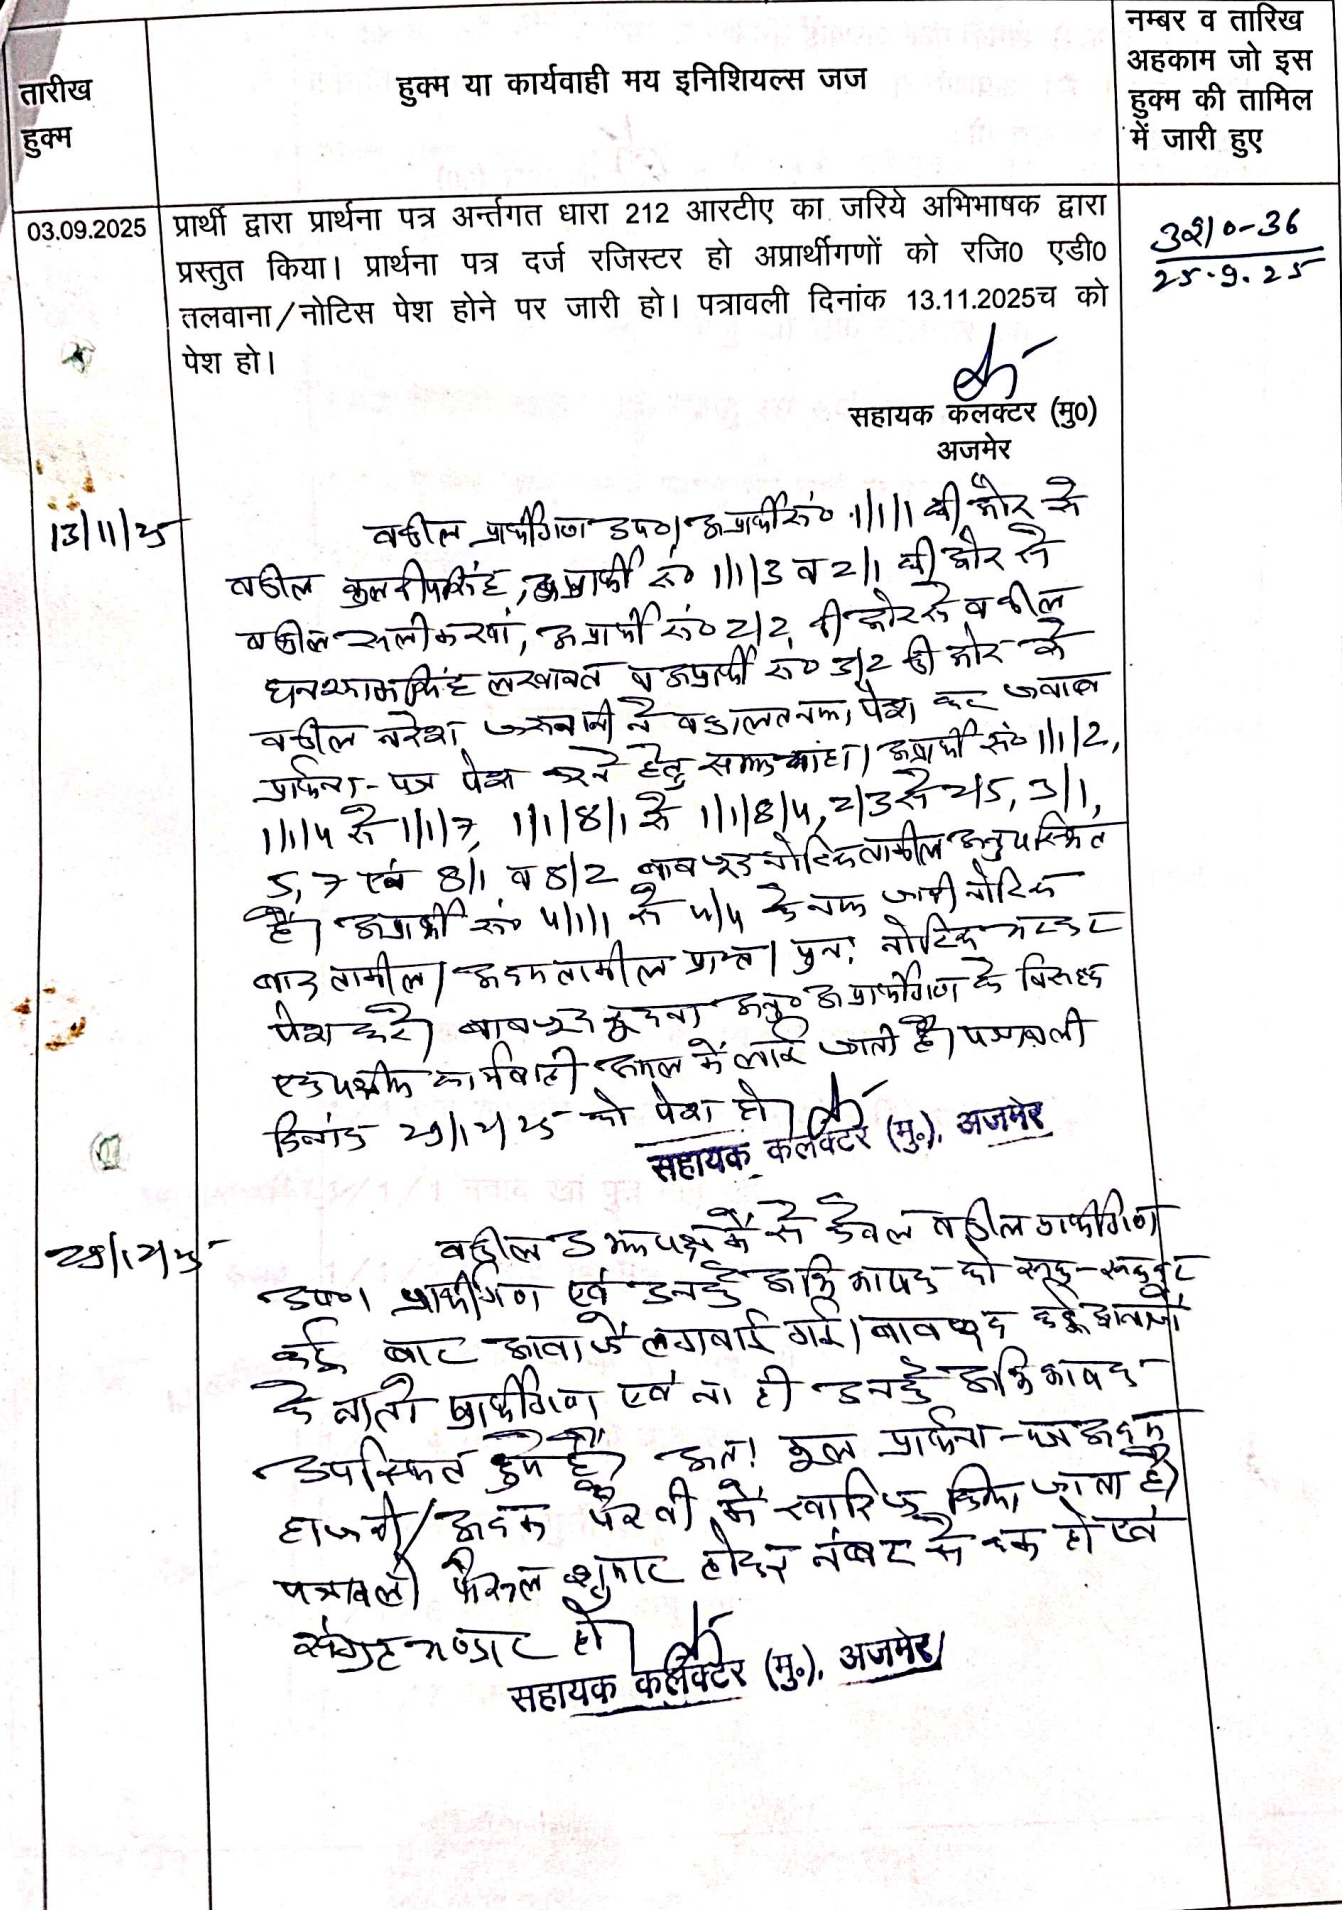 तारीख
हुक्म
हुक्म या कार्यवाही मय इनिशियल्स जज
नम्बर व तारिख
अहकाम जो इस
हुक्म की तामिल
में जारी हुए
03.09.2025
प्रार्थी द्वारा प्रार्थना पत्र अर्न्तगत धारा 212 आरटीए का जरिये अभिभाषक द्वारा
प्रस्तुत किया। प्रार्थना पत्र दर्ज रजिस्टर हो अप्रार्थीगणों को रजि0 एडी0
तलवाना/नोटिस पेश होने पर जारी हो। पत्रावली दिनांक 13.11.2025च को
पेश हो।
25.9.25
सहायक कलक्टर (मु0)
अजमेर
13/11/25
वकील प्रार्थीगण उप०। अप्रार्थी सं० 1/1/1 की ओर से
वकील कुलदीपसिंह, अप्रार्थी सं० 1/1/3 व 2/1 की ओर से
वकील सलीम खां, अप्रार्थी सं० 2/2 की ओर से वकील
घनश्यामसिंह लखावत व अप्रार्थी सं० 3/2 की ओर से
वकील नरेश ने वकालतनामा पेश कर जवाब
प्रार्थना-पत्र पेश करने हेतु समय चाहा। अप्रार्थी सं० 1/1/2,
1/1/4 से 1/1/7, 1/1/8/1 से 1/1/8/4, 2/3 से 2/5, 3/1,
5, 7 एवं 8/1 व 8/2 बावजूद नोटिस तामील अनुपस्थित
है। अप्रार्थी सं० 4/1/1 से 4/4 के नाम जारी नोटिस
बाद तामील/अदम तामील प्राप्त। पुनः नोटिस
पेश करे। बावजूद सूचना अनु० अप्रार्थीगण के विरूद्ध
एकपक्षीय कार्यवाही अमल में लाई जाती है। पत्रावली
दिनांक 29/12/25 को पेश हो।
सहायक कलक्टर (मु.), अजमेर
29/12/25
वकील उभयपक्ष में से केवल वकील प्रार्थीगण
उप०। प्रार्थीगण एवं उनके अभिभाषक को रूक-रूककर
कई बार आवाजें लगवाई गई। बावजूद कई आवाजों
के ना तो प्रार्थीगण एवं ना ही उनके अभिभाषक
उपस्थित हुए है। अतः मूल प्रार्थना-पत्र अदम
हाजरी/अदम पैरवी में खारिज किया जाता है।
पत्रावली फैसल शुमार होकर नंबर से कम हो एवं
संग्रह भण्डार हो।
सहायक कलक्टर (मु.), अजमेर